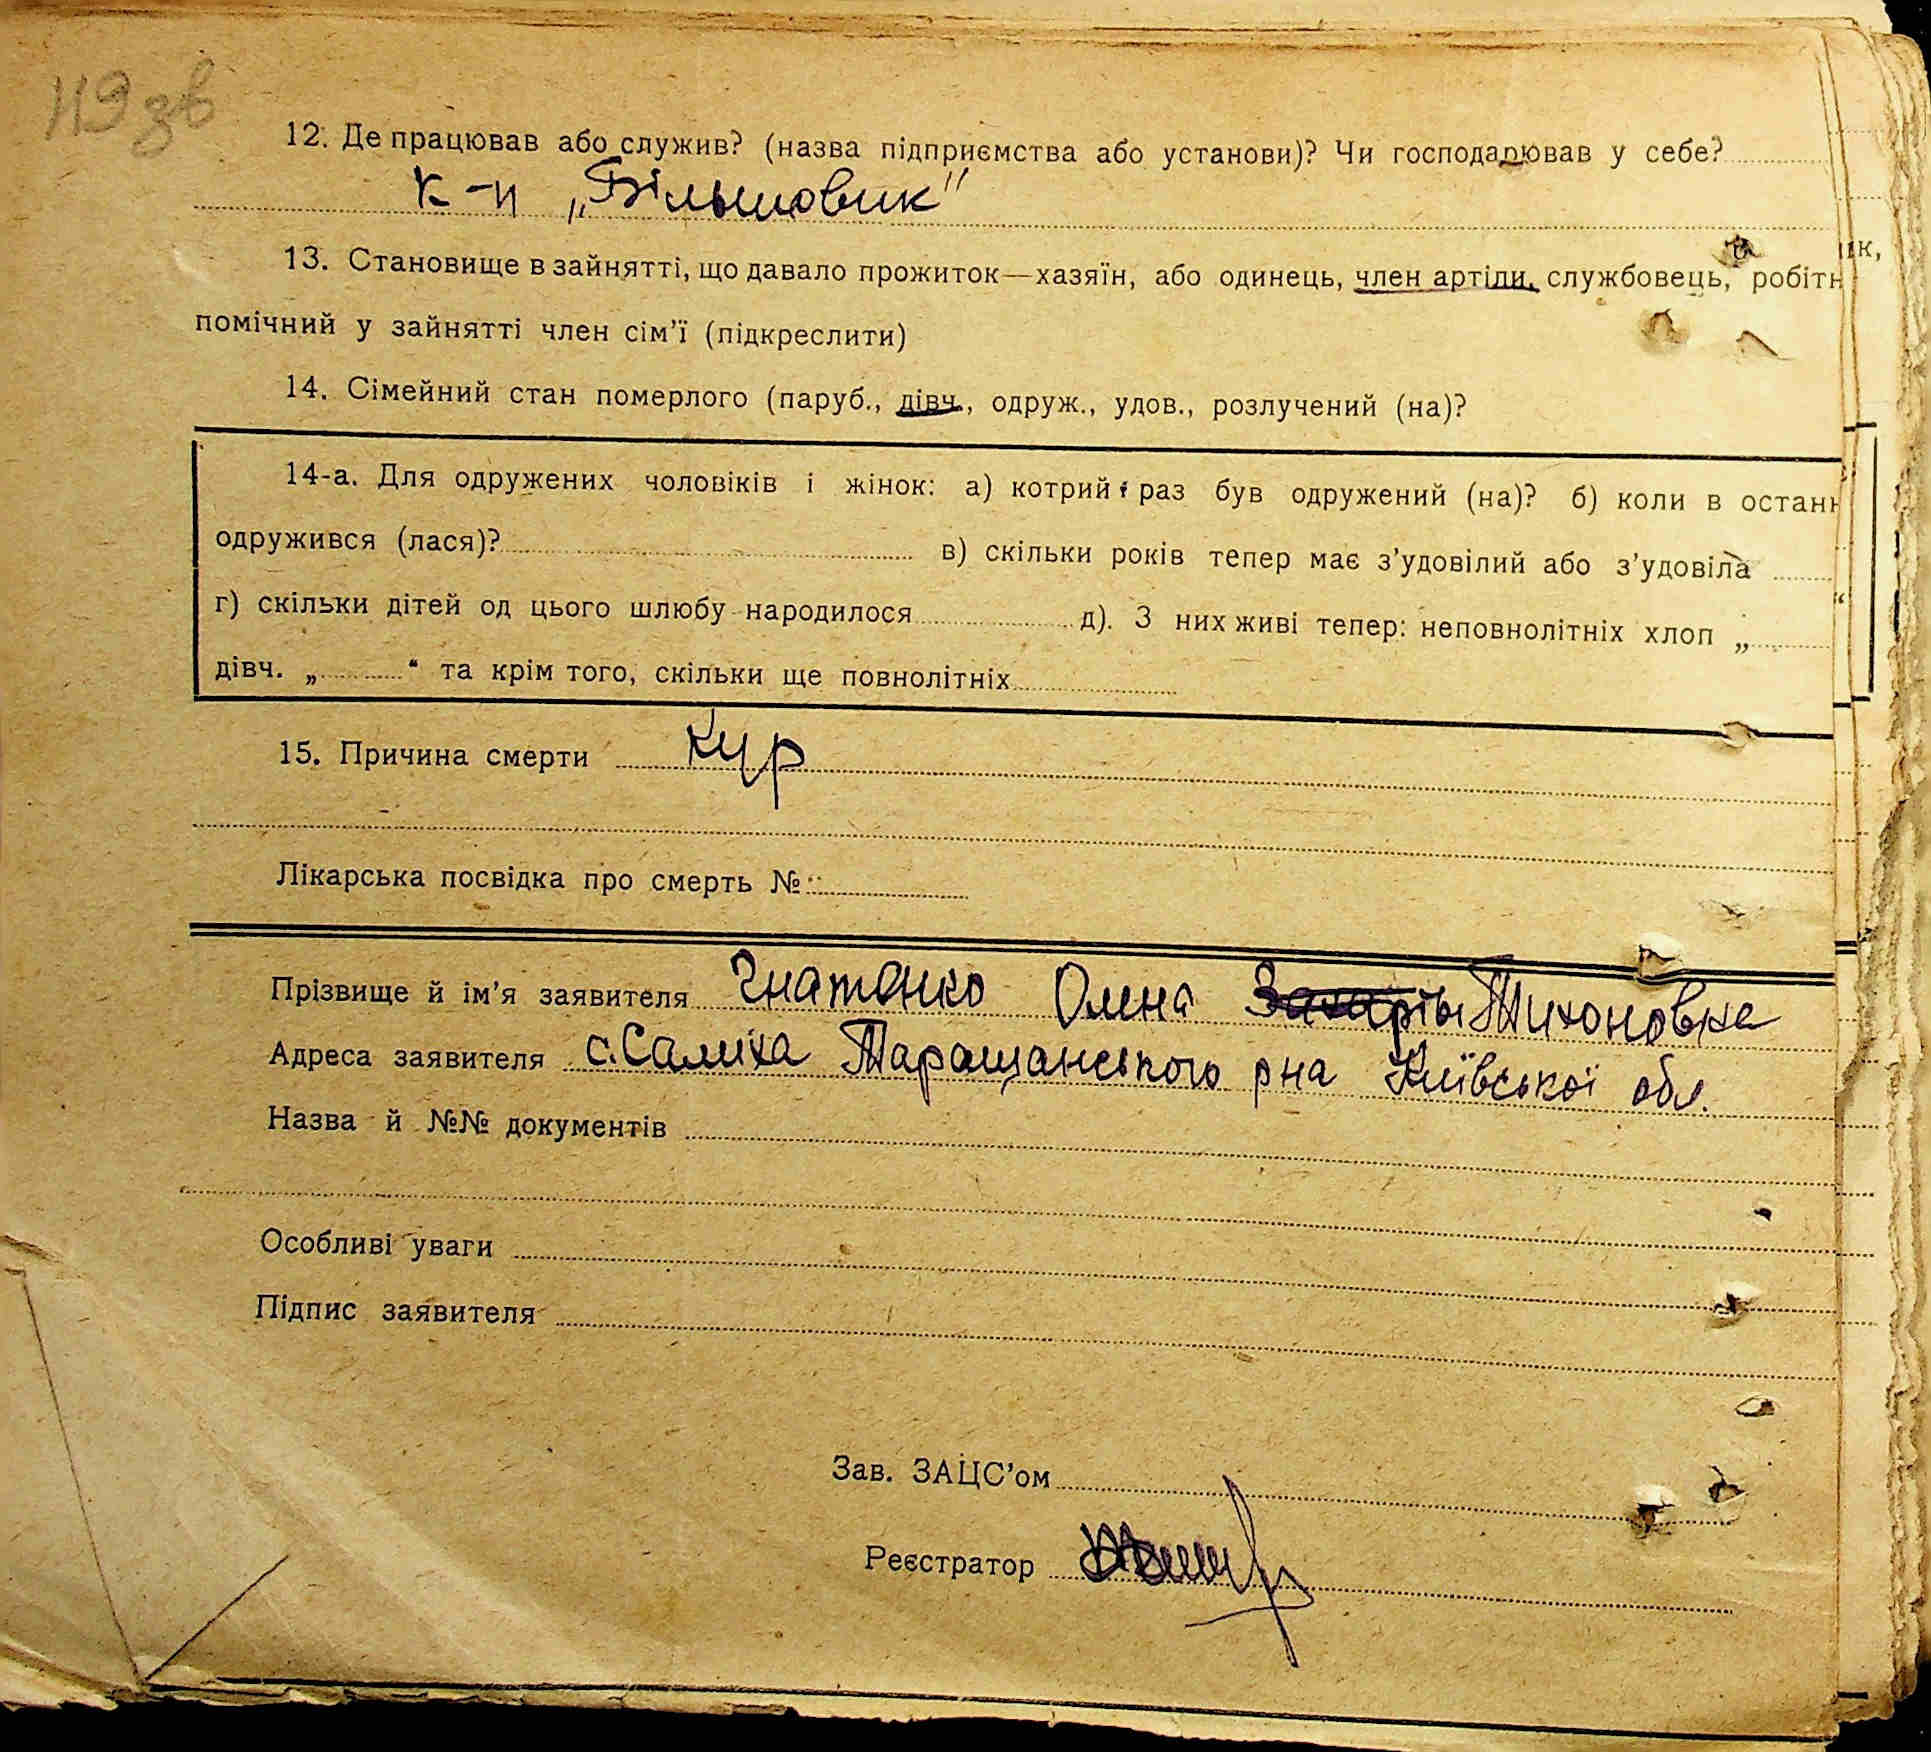 119 зв
12. Де працював або служив? (назва підприємства або установи)? Чи господарював у себе?
к-п „Більшовик"
13. Становище в зайнятті, що давало прожиток—хазяїн, або одинець, член артіли, службовець, робітн
ик,
помічний у зайнятті член сім’ї (підкреслити)
14. Сімейний стан померлого (паруб., дівч., одруж., удов., розлучений (на)?
14-а. Для одружених чоловіків і жінок: а) котрий раз був одружений (на)? б) коли в останн
одружився (лася)? в) скільки років тепер має з’удовілий або з’удовіла
г) скільки дітей од цього шлюбу народилося д). З них живі тепер: неповнолітніх хлоп „ “
дівч. „ “ та крім того, скільки ще повнолітніх
15. Причина смерти Кур
Лікарська посвідка про смерть №
Прізвище й ім’я заявителя Гнатенко Олена Тихоновна
Адреса заявителя с. Салиха Таращанського рна Київської обл.
Назва й №№ документів
Особливі уваги
Підпис заявителя
Зав. ЗАЦС’ом
Реєстратор